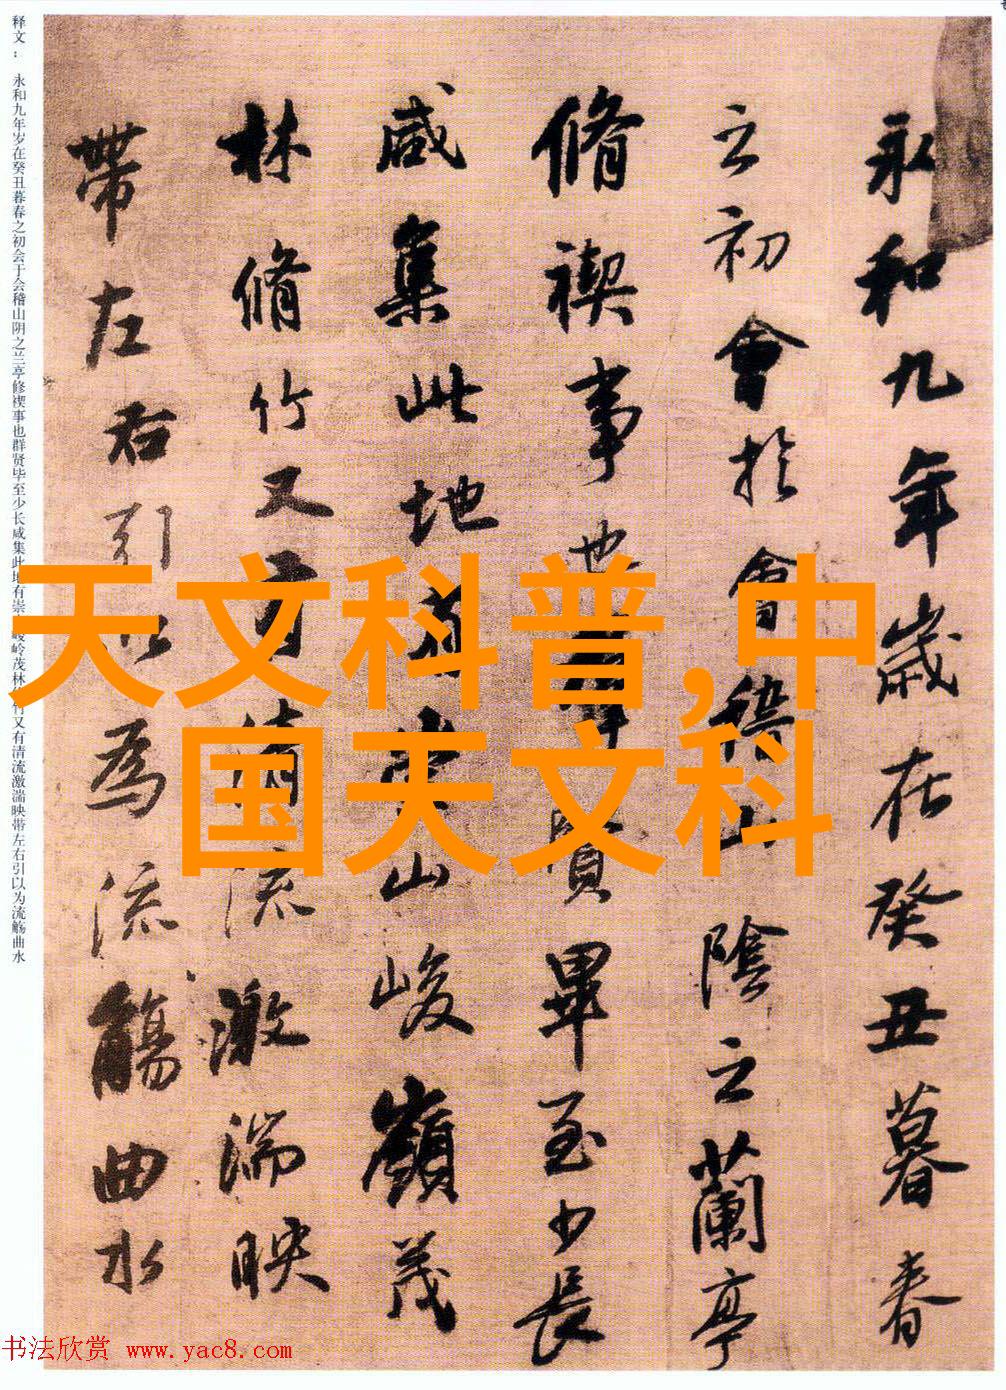 永和九年歲在癸丑暮春
之初會於會稽山陰之蘭亭
脩禊事也群賢畢至少長
咸集此地有崇山峻嶺茂
林脩竹又有清流激湍映
帶左右引以為流觴曲水
释文： 永和九年岁在癸丑暮春之初会于会稽山阴之兰亭修禊事也群贤毕至少长咸集此地有崇峻岭茂林竹又有清流激湍映带左右引以为流觞曲水
天文科普,中
国天文科
书法欣赏 www.yac8.com